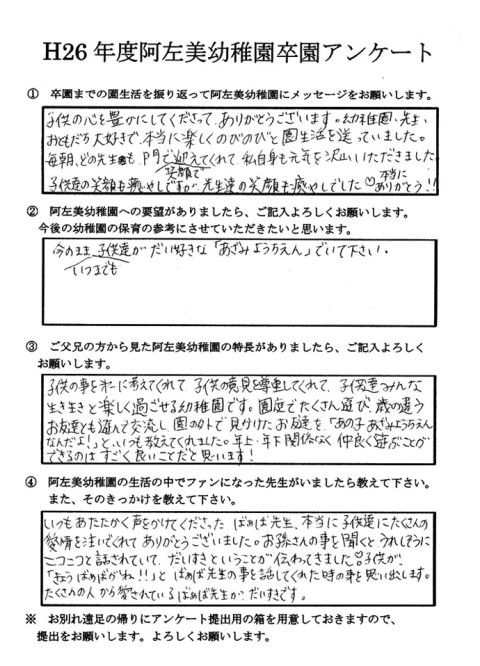 H26 年度阿左美幼稚園卒園アンケート
① 卒園までの園生活を振り返って阿左美幼稚園にメッセージをお願いします。
子供の心を豊かにしてくださって、ありがとうございます。幼稚園、先生、
おともだち大好きで、本当に楽しくのびのびと園生活を送っていました。
毎朝、どの先生も、門で笑顔で迎えてくれて 私自身も元気を沢山いただきました
子供達の笑顔も癒やしですが、先生達の笑顔も癒やしでした♡本当にありがとう!!
② 阿左美幼稚園への要望がありましたら、ご記入よろしくお願します。
今後の幼稚園の保育の参考にさせていただきたいと思います。
今のまま、いつまでも子供達がだい好きな「あざみようちえん」でいて下さい。
③ ご父兄の方から見た阿左美幼稚園の特長がありましたら、ご記入よろしく
お願いします。
子供の事を第一に考えてくれて 子供の意見を尊重してくれて、子供達みんな
生き生きと楽しく過ごせる幼稚園です。園庭でたくさん遊び、歳の違う
お友達とも遊んで交流し 園の外で見かけたお友達を「あの子あざみようちえん
なんだよ!」と、いつも教えてくれました。年上・年下関係なく 仲良く遊ぶことが
できるのは すごく良いことだと思います!
④ 阿左美幼稚園の生活の中でファンになった先生がいましたら教えて下さい。
また、そのきっかけを教えて下さい。
いつもあたたかく声をかけてくださった ばぁば先生、本当に子供達にたくさんの
愛情を注いでくれて ありがとうございました。お孫さんの事を聞くと うれしそうに
ニコニコと話されていて、だいすきということが 伝わってきました♡子供が、
「きょうばぁばがね!!」と ばぁば先生の事を話してくれた時の事を思い出します。
たくさんの人から愛されているばぁば先生が、だいすきです。
※ お別れ遠足の帰りにアンケート提出用の箱を用意しておきますので、
提出をお願いします。よろしくお願いします。